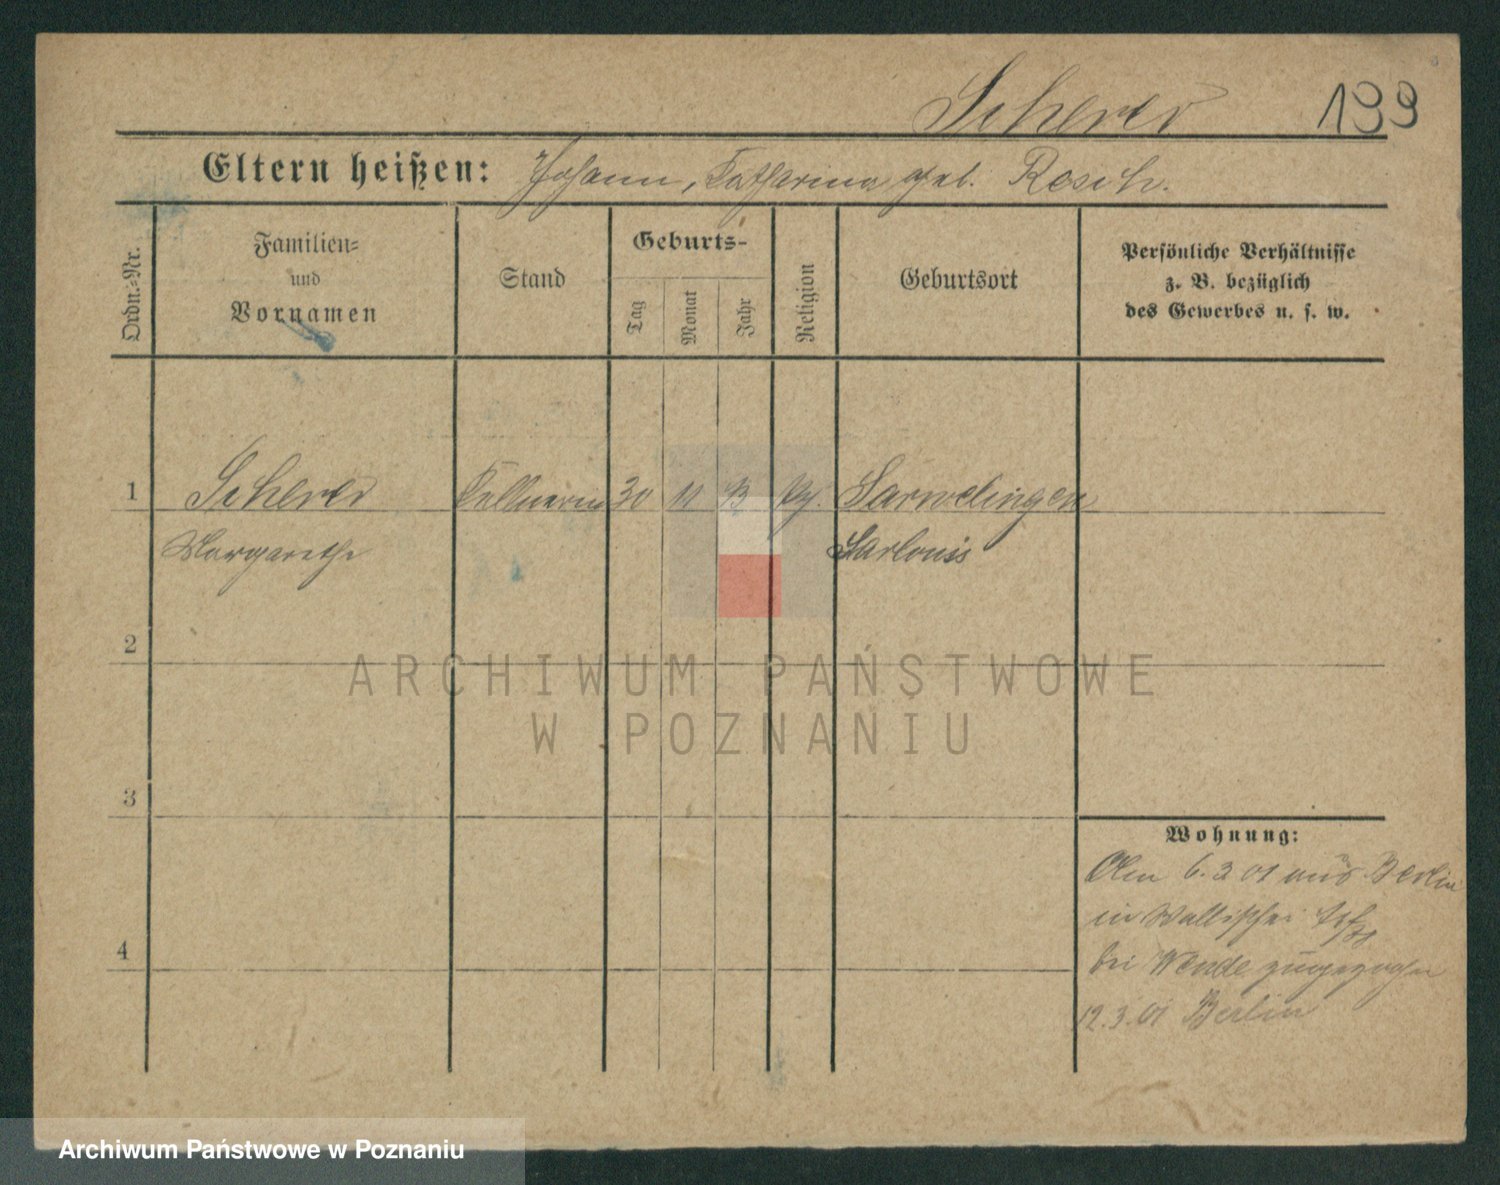 Scherer 199
Eltern heißen: Johann, Katharina geb. Rosch.
Ordn.-Nr.
Familien-
und
Vornamen
Stand
Geburts-
Tag
Monat
Jahr
Religion
Geburtsort
Persönliche Verhältnisse
z. B. bezüglich
des Gewerbes u. s. w.
1 Scherer Kellnerin 30 11
Margarethe Sarlouis
2
3
4
Wohnung:
6. 3 01 aus Berlin
in Wallischei
bei Wende zugezogen
12. 3. 01 Berlin
ARCHIWUM PAŃSTWOWE
W POZNANIU
Archiwum Państwowe w Poznaniu